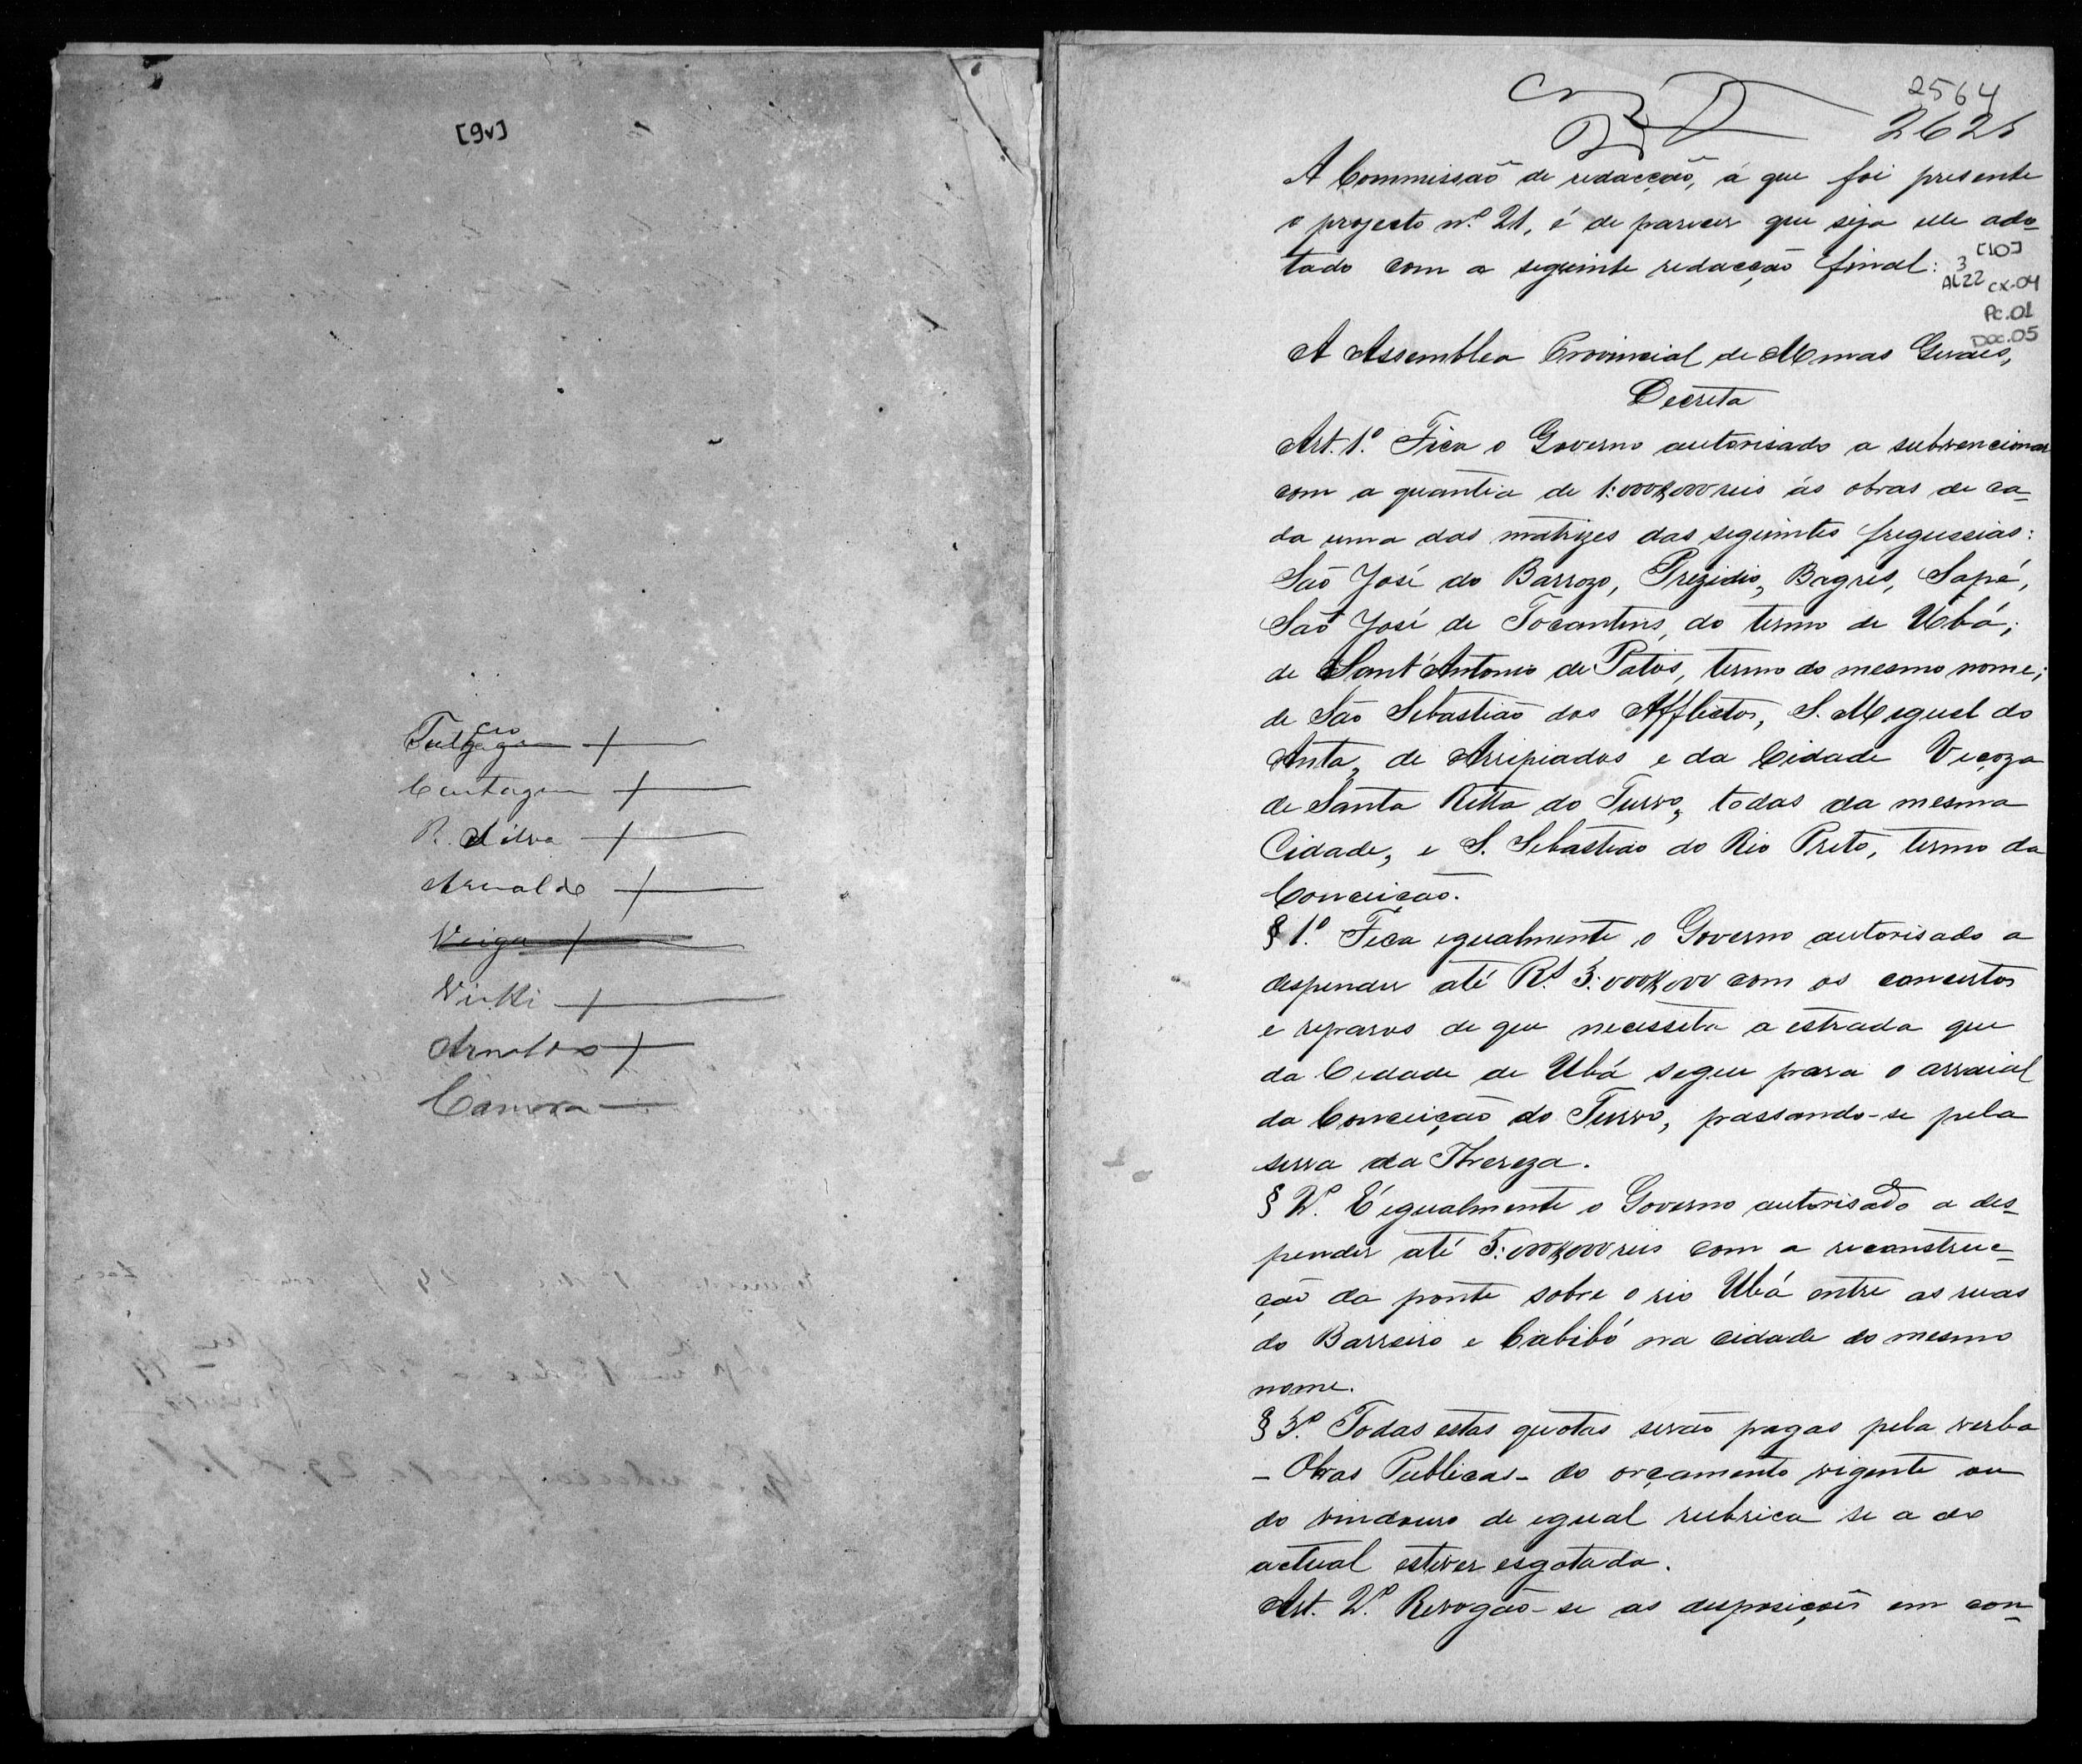 [9v]
Cartagen
R. Silva
Arnaldo
Veiga
Vietti
Arnaldo
Camara
2564
262
A Commissão de redacção, á que foi presente
o projecto nº 21, é de parecer que seja elle ado-
tado com a seguinte redacção final:
[10]
3
AL22 CX-04
Pc.01
Doc.05
A Assemblea Provincial de Minas Geraes,
Decreta
Art. 1.º Fica o Governo autorisado a subvencionar
com a quantia de 1:000$000 reis ás obras de ca-
da uma das matrizes das seguintes freguesias:
São José do Barrozo, Prezidio, Bagres, Sapé,
São José de Tocantins, do termo de Ubá;
de Sant'Antonio de Patos, termo do mesmo nome;
de São Sebastião dos Afflictos, S. Miguel do
Anta, de Arripiados e da Cidade Viçoza
de Santa Ritta do Turvo, todas da mesma
Cidade, e S. Sebastião do Rio Preto, termo da
Conceição.
§ 1.º Fica egualmente o Governo autorisado a
despender até Rs. 3:000$000 com os concertos
e reparos de que necessita a estrada que
da Cidade de Ubá segue para o arraial
da Conceição do Turvo, passando-se pela
serra da Thereza.
§ 2.º É egualmente o Governo autorisado a des-
pender até 5:000$000 reis com a reconstruc-
ção da ponte sobre o rio Ubá entre as ruas
do Barreiro e Cabibó na cidade do mesmo
nome.
§ 3.º Todas estas quotas serão pagas pela verba
- Obras Publicas - do orçamento vigente ou
do vindouro de egual rubrica se a do
actual estiver esgotada.
Art. 2.º Revogão-se as disposições em con-